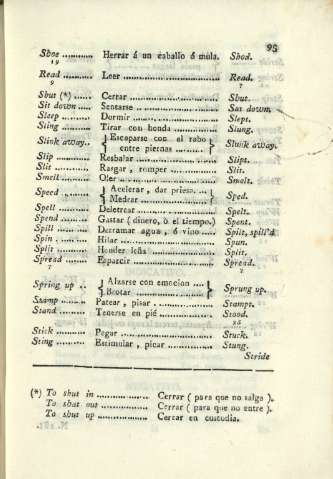 95
Shoe ........... Herrar á un caballo ó mula. Shod.
19
Read ........... Leer ........... Read.
9 ?
Shut (*) ...... Cerrar ........... Shut.
Sit down ..... Sentarse ........... Sat down.
Sleep ........... Dormir ........... Slept.
Sling ........... Tirar con honda ........... Slung.
Slink away.. { Escaparse con el rabo entre piernas ........ } Slunk away.
Slip ........... Resbalar ........... Slipt.
Slit ........... Rasgar, romper ........... Slit.
Smell ........... Oler ........... Smelt.
Speed ........... { Acelerar, dar priesa. ... Medrar ........... } Sped.
Spell ........... Deletrear ........... Spelt.
Spend ........... Gastar (dinero, ò el tiempo). Spent.
Spill ........... Derramar agua, ó vino ..... Spilt, spill'd
Spin ........... Hilar ........... Spun.
Split ........... Hender leña ........... Split.
Spread ........... Esparcir ........... Spread.
7
Spring up .. { Alzarse con emocion .... Brotar ........... } Sprung up.
Stamp ........... Patear, pisar ........... Stampt.
Stand ........... Tenerse en pié ........... Stood.
Stick ........... Pegar ........... Stuck.
Sting ........... Estimular, picar ........... Stung.
Stride
(*) To shut in ........... Cerrar (para que no salga).
To shut out ........... Cerrar (para que no entre).
To shut up ........... Cercar en custodia.